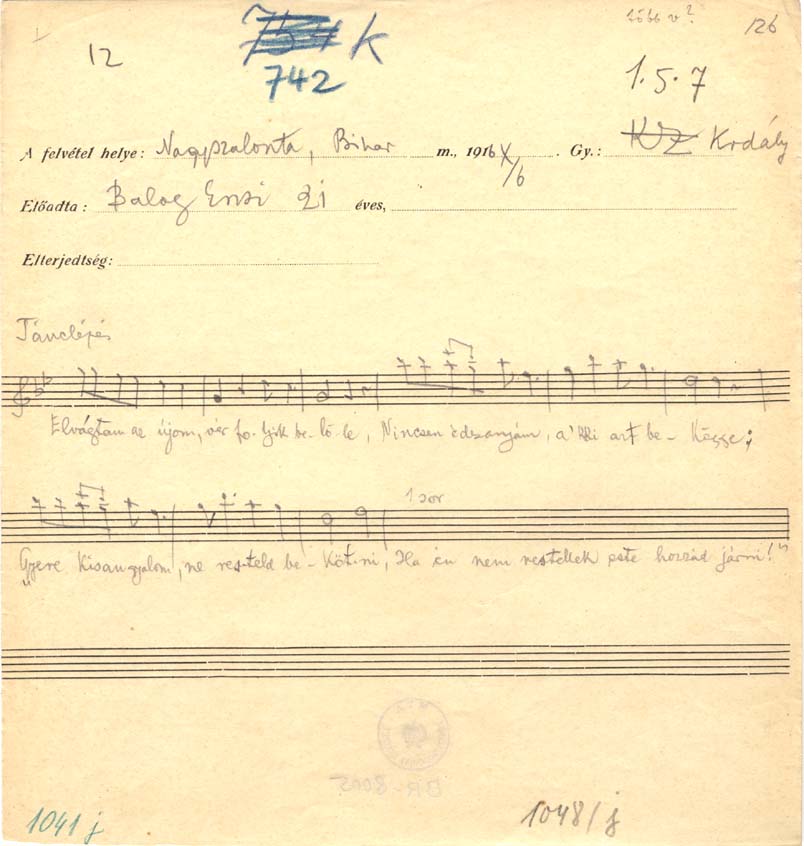 12 742 K több v? 126
1.5.7
A felvétel helye: Nagyszalonta, Bihar m., 1916 X/6. Gy.: KZ Krdály
Előadta: Balog Enzi 21 éves,
Elterjedtség:
Tánclépés
Elvágtam az újom, vér fo-lyik be-lő-le, Nincsen édszanyám, a'ki azt be-kösse;
1 sor
"Gyere kisangyalom, ne res-teld be-köt-ni, Ha én nem restellek este hozzád járni!"
BR-8005
1041 j 1048/j